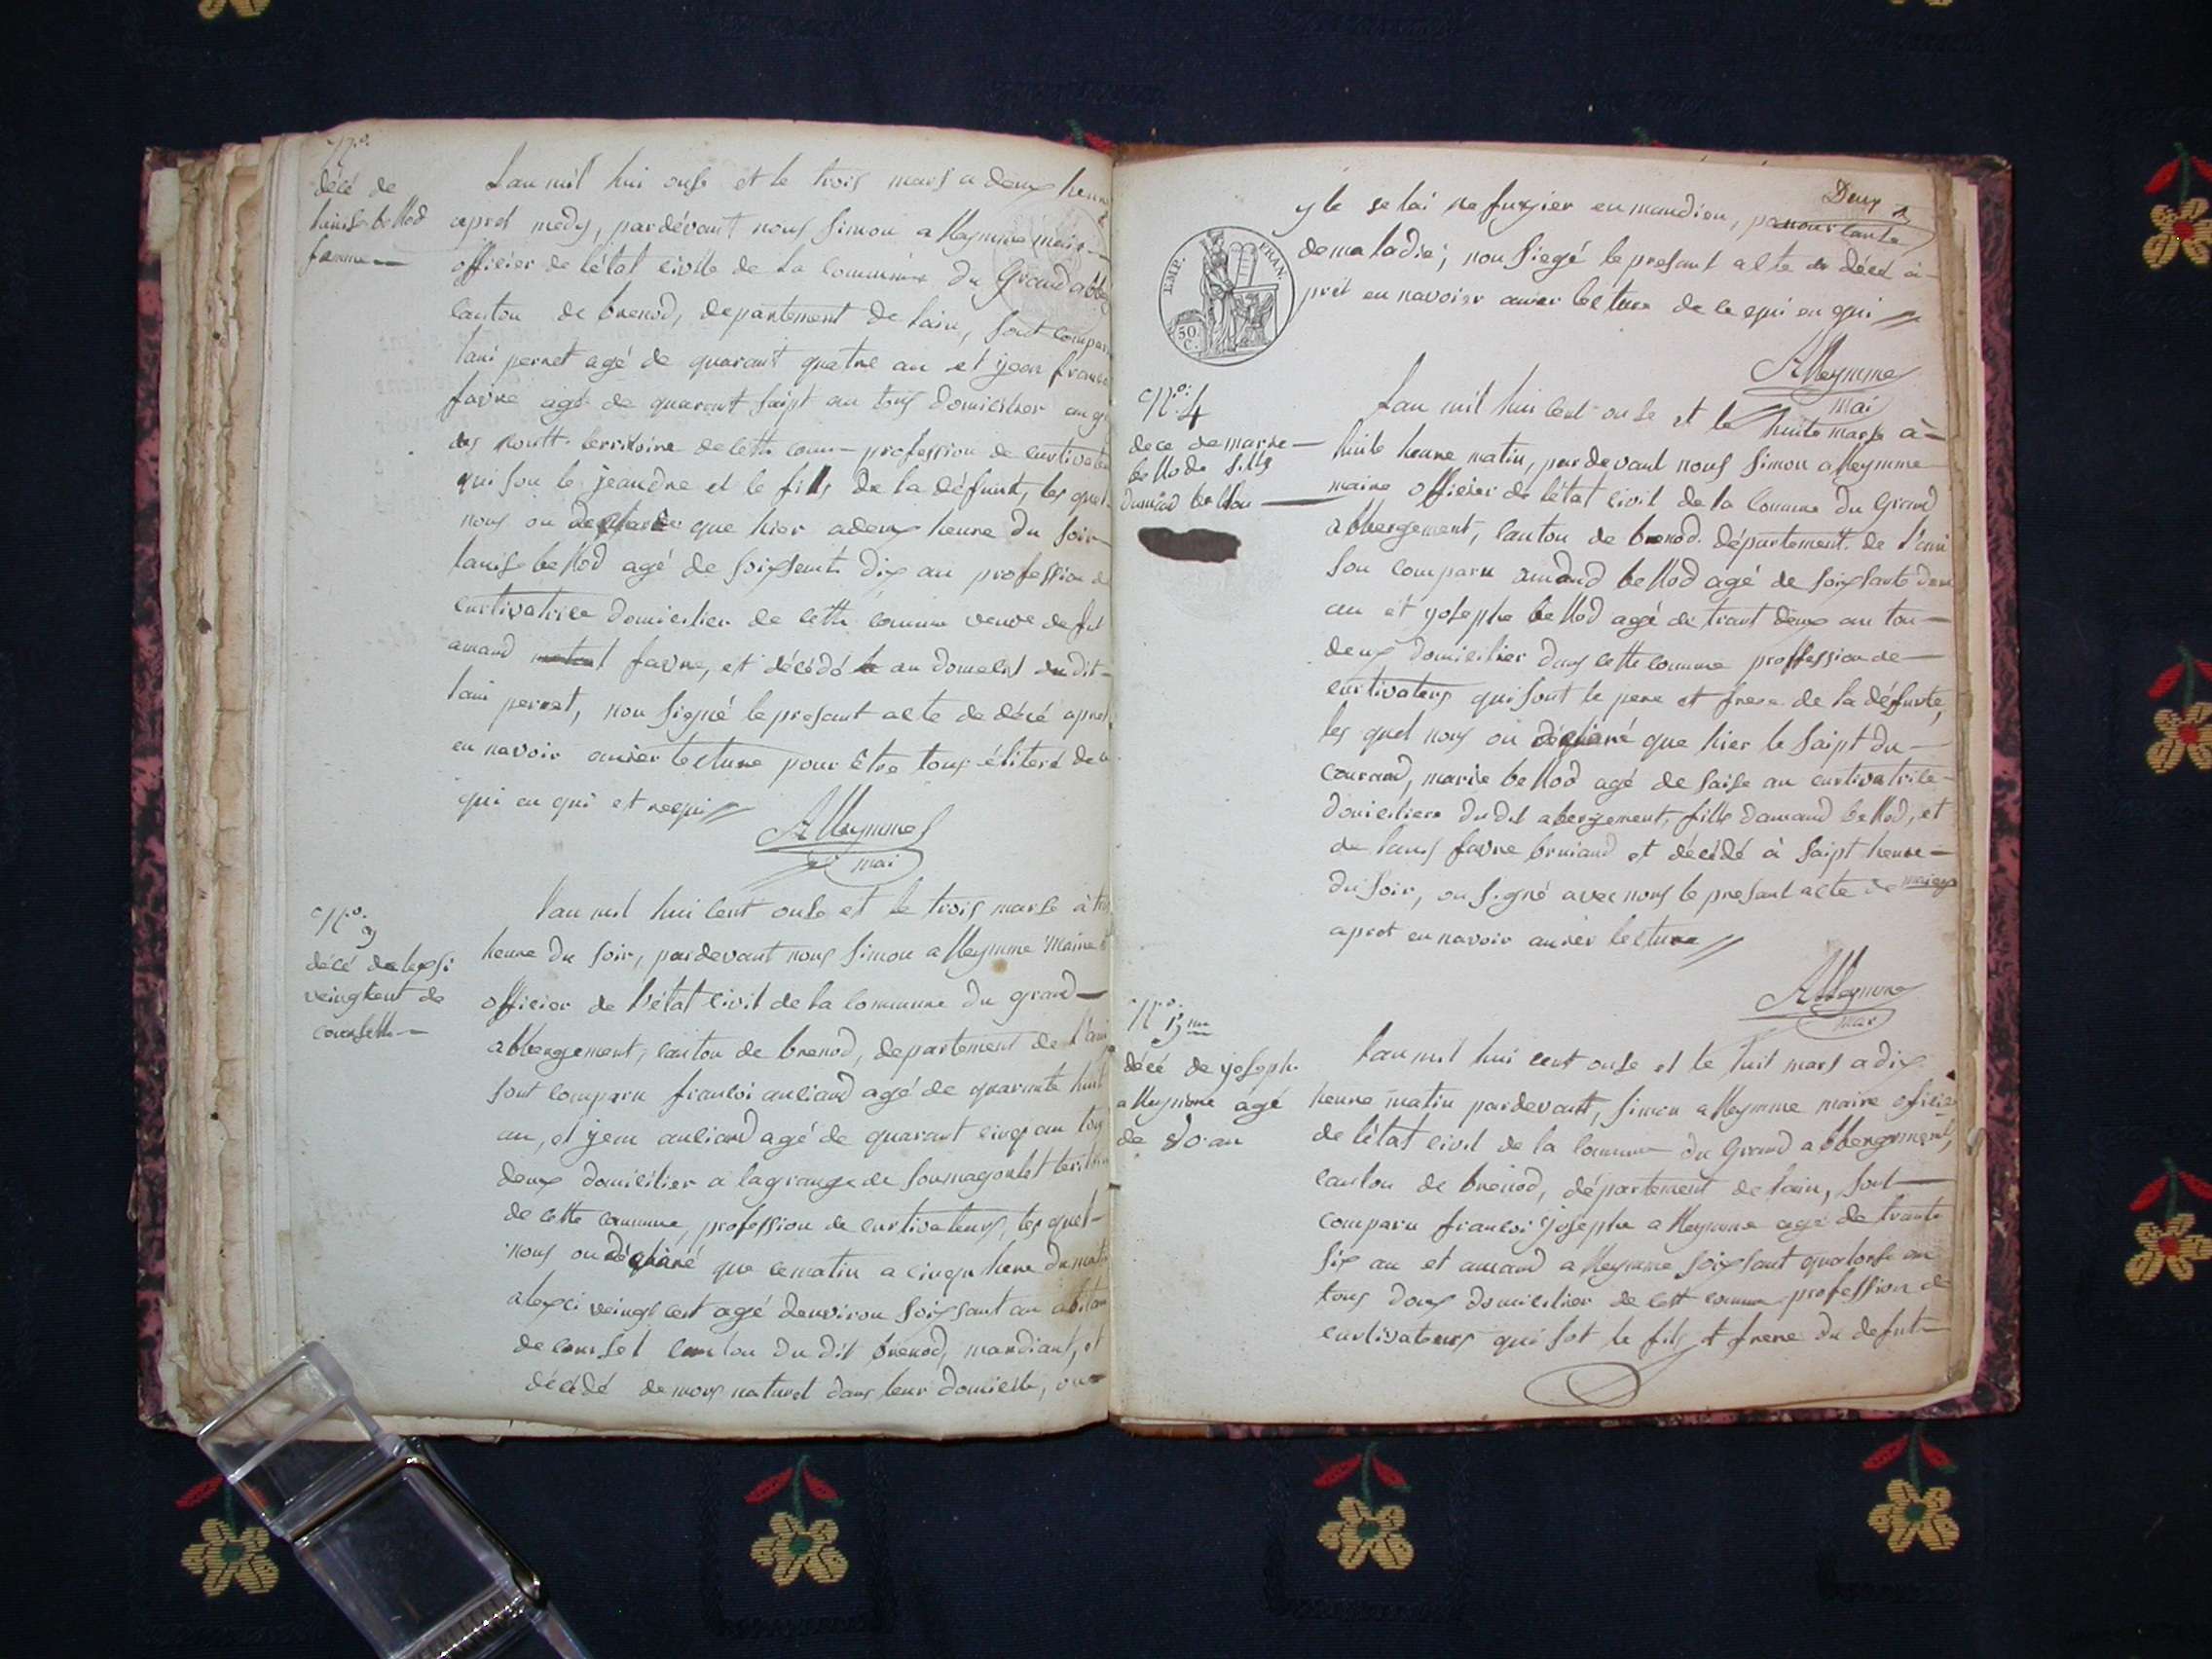 N.o
décé de
louise bellod
femme
Lan mil hui onse et le trois mars a deux heure
apret medy, pardévant nous Simon alleymme maire
officier de létat civille de la commune du Grand abb
canton de brenod, departement de lain, sont comparu
loui pernet agé de quarant quatre an et jean francoi
favre agé de quarent saipt an tous domicilier
territoire de cette com profession de curtivateu
qui son le jeandre et le fills de la défunt, les quel
nous on declaré que hier a deux heure du soir
louise bellod agé de soixsente dix an profession de
curtivatrice domicilier de cette comune veuve de fut
amand favre, et décédé au domicil du dit
loui pernet, non signé le presant acte de décé apret
en navoir amier lecture pour être tous éliteré de ce
qui en qui et requi
Alleymme
mai
N.o 3
décé dalexsi
veingtcent de
courselle
Lan mil hui cent onse et le trois marse à
heure du soir, pardevant nous Simon alleymme Maire et
officier de létat civil de la commune du grand
abbergement, canton de brenod, departement de l'ain
sont comparu francoi anciand agé de quarante huit
an, et jean anciand agé de quarant cinq an tous
deux domicilier a lagrange de soumagoulet
de cette commune, profession de curtivateurs, les quel
nous on déquaré que cematin a cinqu heure du matin
alexci veingt cent agé denviron soixsant an abitan
de courset canton du dit brenod, mandiant, et
décédé de mors naturel dans leur domicile, ou
Deux
y le se lai refuxgier en mandien, par
demaladie; non siegé lepresant acte de décé à
prét en navoier amier lecture de ce qui en qui
EMP. FRAN.
50 C.
Alleymme
mai
N.o 4
décé de marie
bellode fille
damand bellod
Lan mil hui cent onse et le huite marse à
huite heure matin, pardevant nous Simon alleymme
maire officier de létat civil de la Comune du Grand
abbergement, canton de brenod département de l'ain
son comparu amand bellod agé de soixsante deux
an et yosephe bellod agé de trant deux an tou
deux domicilier dans cette comune proffession de
curtivateurs qui sont le pere et frere de la défunte,
les quel nous on déquaré que hier le saipt du
courand, marie bellod agé de saise an curtivatrice
domiciliere dudit abergement, fille damand bellod, et
de louis favre bruniand et décédé à saipt heure
du soir, on signé avec nous le presant acte de
apret en navoir amier lecture
Alleymme
mai
N.o 5me
décé de yoseph
alleymme agé
de 80 an
Lan mil hui cent onse et le huit mars a dix
heure matin pardevant, Simon alleymme maire oficier
de létat civil de la commune du Grand abbergement,
canton de brenod, département de lain, sont
comparu francoi yosephe alleymme agé de trante
six an et amand alleymme soixsant quatorse an
tous deux domicilier de cett comune profession de
curtivateurs qui sot le fils et frere du defut